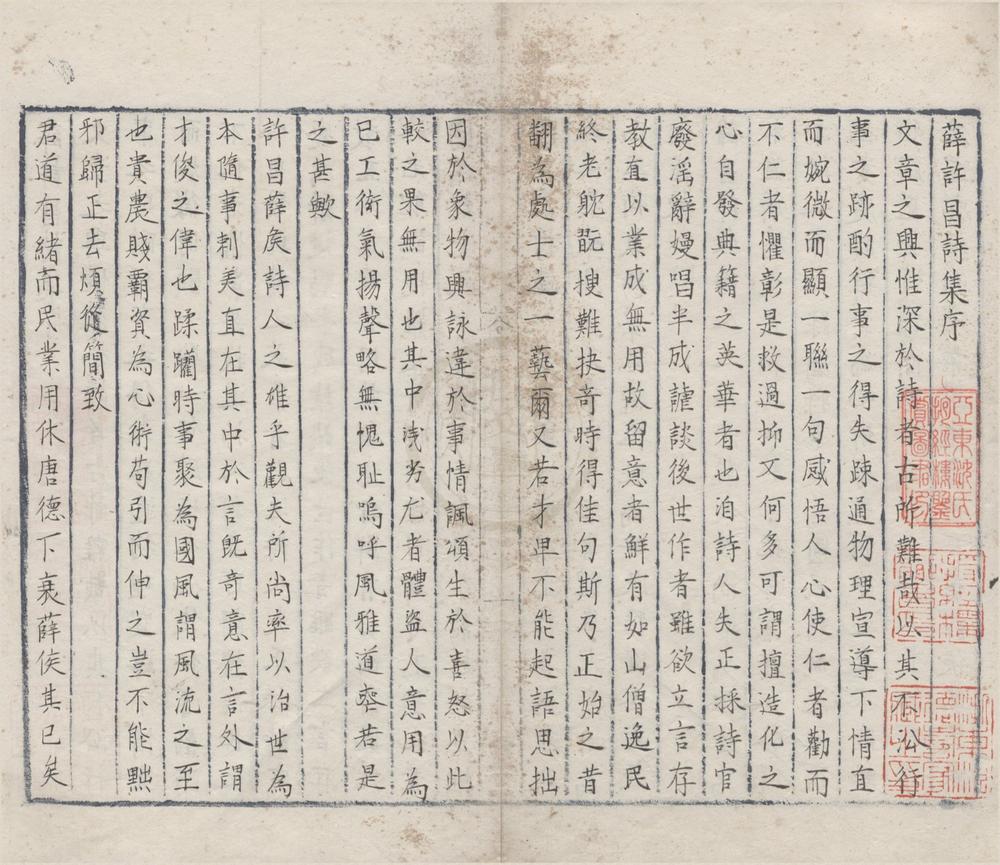 薛許昌詩集序
文章之興惟深於詩者古所難或以其不沿行
事之跡酌行事之得失踈通物理宣導下情直
而婉微而顯一聯一句感悟人心使仁者勸而
不仁者懼彰是救過抑又何多可謂擅造化之
心自發典籍之英華者也洎詩人失正採詩官
廢淫辭嫚唱半成謔談後世作者雖欲立言存
教直以業成無用故留意者鮮有如山僧逸民
終老躭翫搜難抉奇時得佳句斯乃正始之昔
翻為處士之一藝爾又若才卑不能起語思拙
因於象物興詠違於事情諷頌生於喜怒以此
較之果無用也其中浅劣尤者體盜人意用為
已工衒氣揚聲略無愧耻嗚呼風雅道喪若是
之甚歟
許昌薛矦詩人之雄乎觀夫所尚率以治世為
本隨事刺美直在其中於言既奇意在言外謂
才俊之偉也蹂躪時事聚為國風謂風流之至
也貴農賤覇資為心術苟引而伸之豈不能黜
邪歸正去煩從簡致
君道有緒而民業用休唐德下衰薛侯其已矣
亞東沈氏
抱經樓鑒
賞圖書印